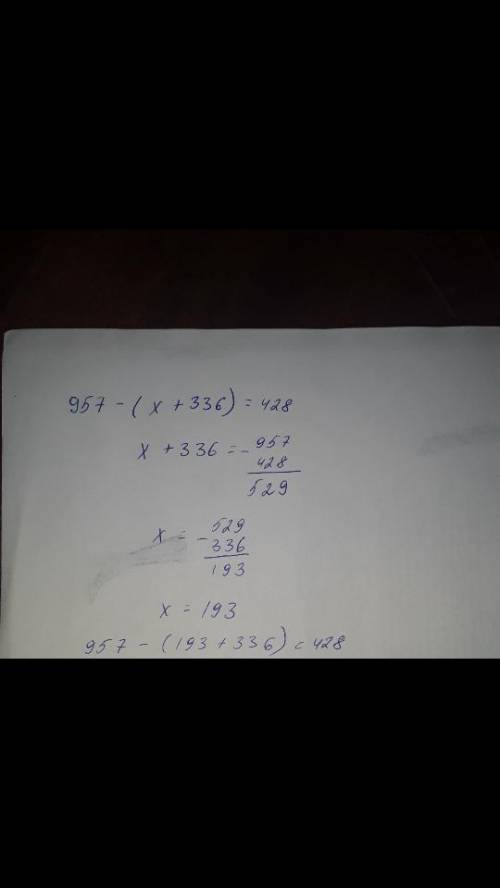 957 - ( x + 336 ) = 428
x + 336 = - 957
428
529
x = - 529
336
193
x = 193
957 - ( 193 + 336 ) = 428